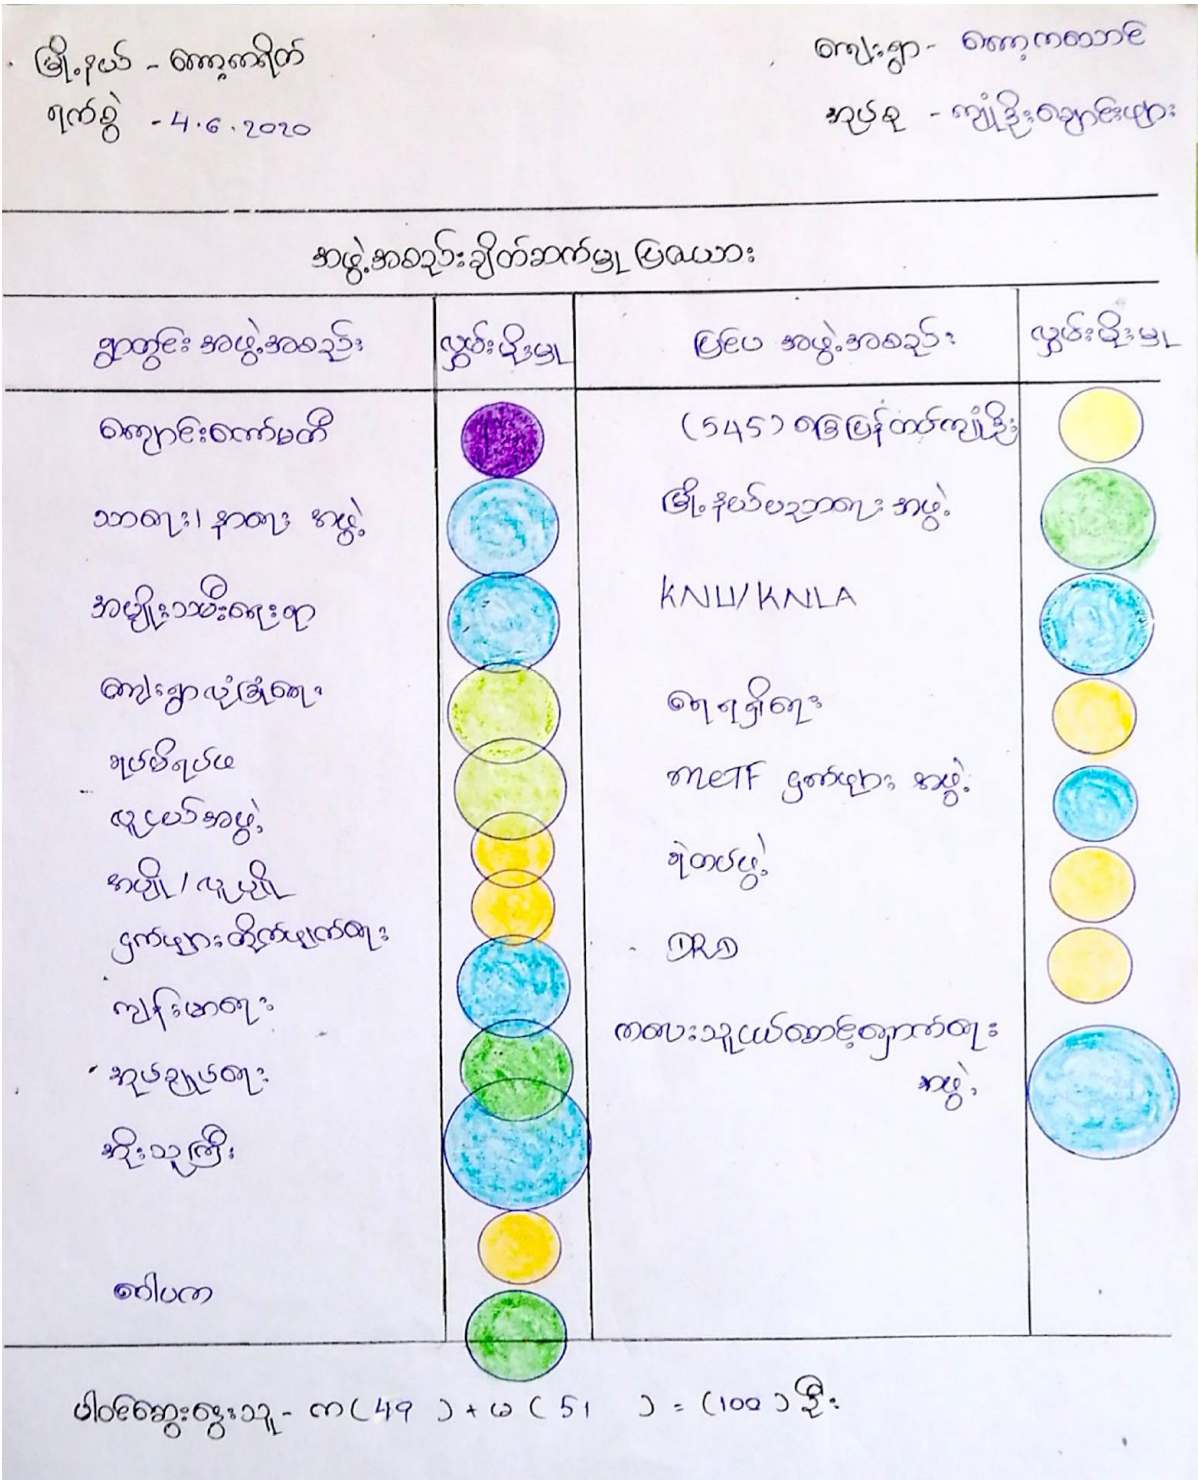 မြို့နယ် - ကော့ကရိတ်
ကျေးရွာ - ကော့ကဘောင်
ရက်စွဲ - 4.6.2020
အုပ်စု - ကျုံဒိုးချောင်းဖျား
အဖွဲ့အစည်းချိတ်ဆက်မှု ပြဇယား
ရွာတွင်း အဖွဲ့အစည်း
လွှမ်းမိုးမှု
ပြင်ပ အဖွဲ့အစည်း
လွှမ်းမိုးမှု
ကျောင်းကော်မတီ
(545) ခြေမြန်တပ်ကျုံဒိုး
သာရေး၊ နာရေး အဖွဲ့
မြို့နယ်ပညာရေး အဖွဲ့
အမျိုးသမီးရေးရာ
KNU/KNLA
ကျေးရွာလုံခြုံရေး
ရေရရှိရေး
ရပ်မိရပ်ဖ
MCTF ငှက်ဖျား အဖွဲ့
လူငယ်အဖွဲ့
အပျို / လူပျို
ရဲတပ်ဖွဲ့
ငှက်ဖျားတိုက်ဖျက်ရေး
DRD
ကျန်းမာရေး
ကလေးသူငယ်စောင့်ရှောက်ရေး
အဖွဲ့
အုပ်ချုပ်ရေး
အိုးသူကြီး
ဂေါပက
ပါဝင်ဆွေးနွေးသူ - က ( 49 ) + မ ( 51 ) = (100) ဦး